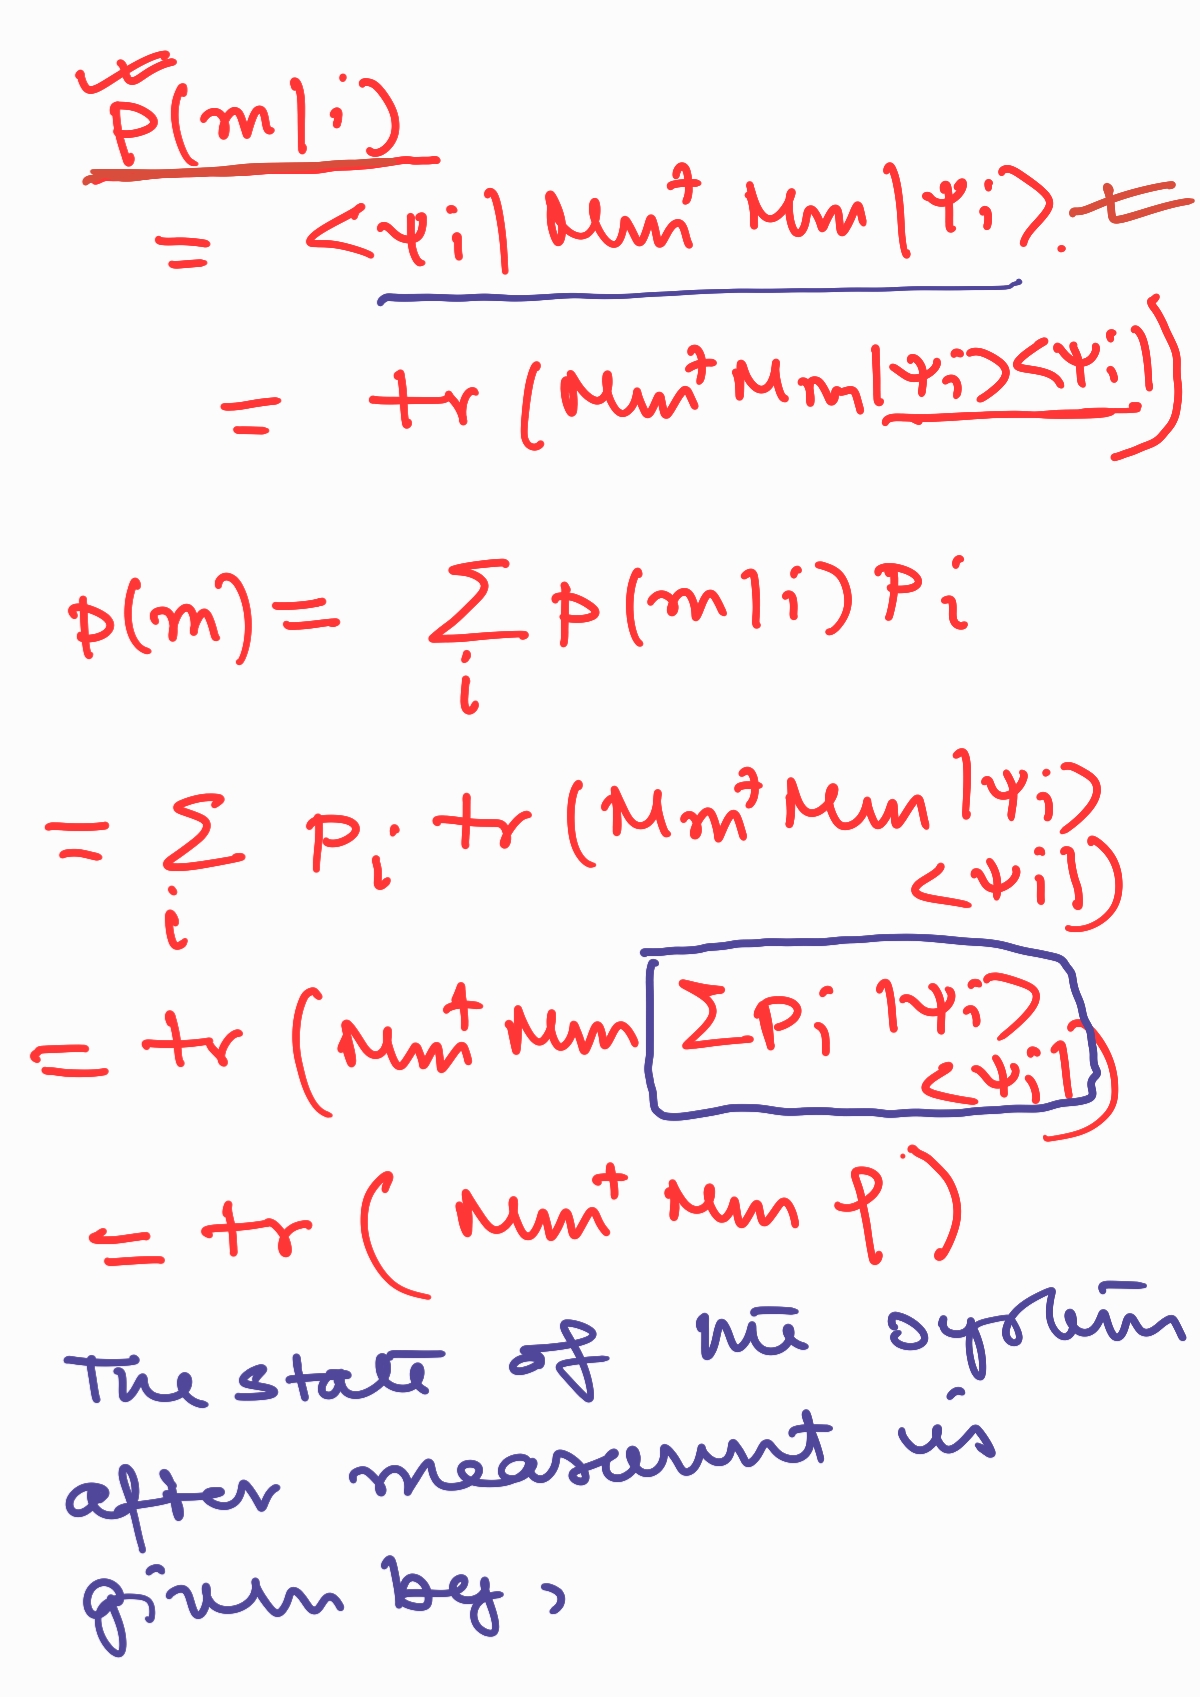 p(m|i)
= <ψi| Mm† Mm |ψi>.
= tr (Mm† Mm |ψi><ψi|)
p(m) = Σ p(m|i) Pi
i
= Σ pi tr (Mm† Mm |ψi>
i
<ψi|)
= tr (Mm† Mm Σ pi |ψi>
<ψi|)
= tr (Mm† Mm ρ)
The state of the system
after measurmnt is
given by,